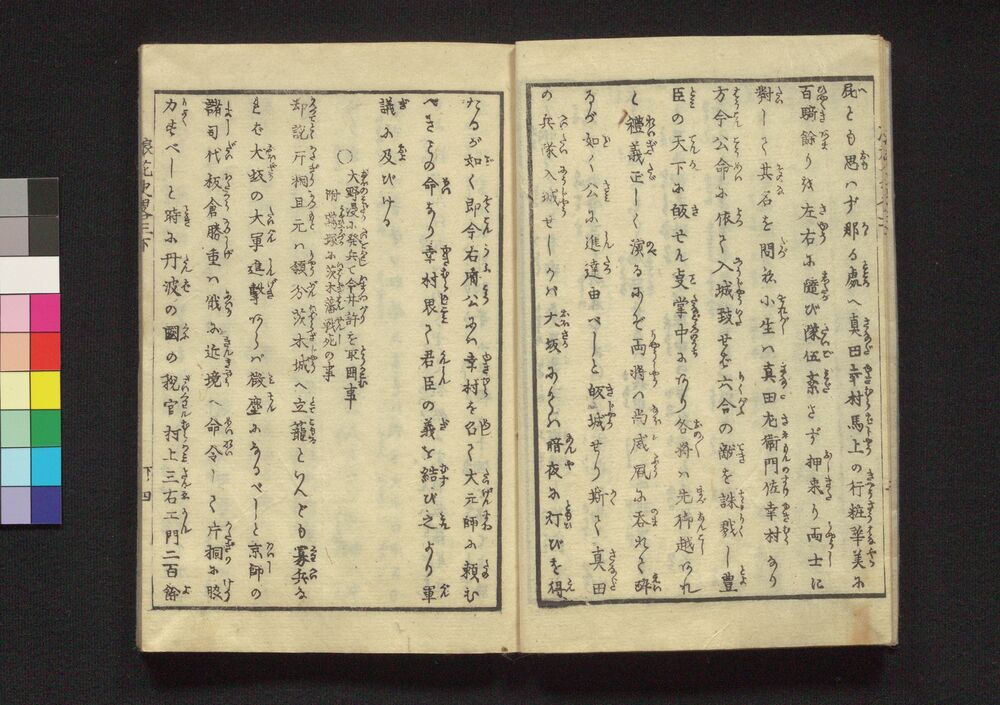 屁とも思ハず那る處へ真田幸村馬上の行粧華美に
百騎餘り致左右に隨び隊伍紊さず押来り両士に
對して其名を問ね小生ハ真田左衛門佐幸村なり
方今公命に依て入城致せど六合の敵を誅戮し豊
臣の天下に皈せん支掌中にあり各将ハ先
く禮義正しく演るにぞ両将ハ尚威風に呑れて酔
るが如く公に進達由べしと皈城せり斯て真田
の兵隊入城せしかバ大坂にあるハ暗夜に灯びを得
たるが如く即今右府公に幸村を召て大元師に頼む
べきとの命あり幸村畏て君臣の義を結び之より軍
議に及びける
○大野漫に発兵で今井許を取囲事
附 に茨木藩戦死の事
却説片桐且元ハ領分茨木城へ立籠といへども寡兵な
れバ大坂の大軍進撃あらバ微塵になるべしと京師の
諸司代板倉勝重ハ俄に近境へ命令して片桐に
力すべしと時に丹波の國の官村上三右エ門二百餘
下ノ四